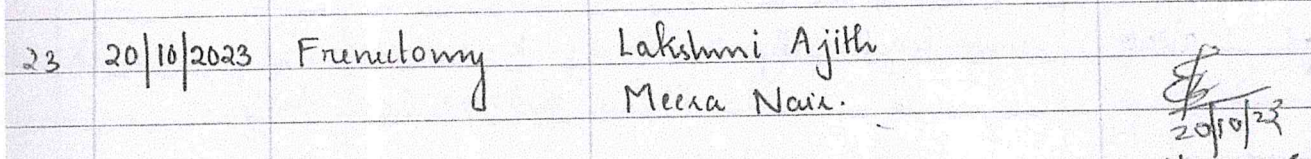 23 20/10/2023 Frenectomy Lakshmi Ajith
Meera Nair.
20/10/23